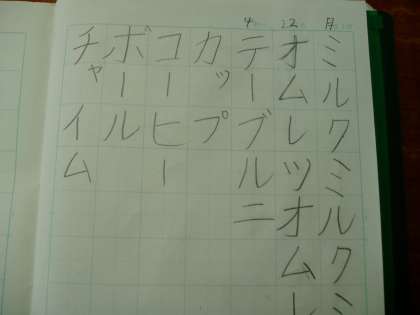 4 22 月
ミルクミルクミ
オムレツオムレ
テーブルニ
カップ
コーヒー
ボール
チャイム